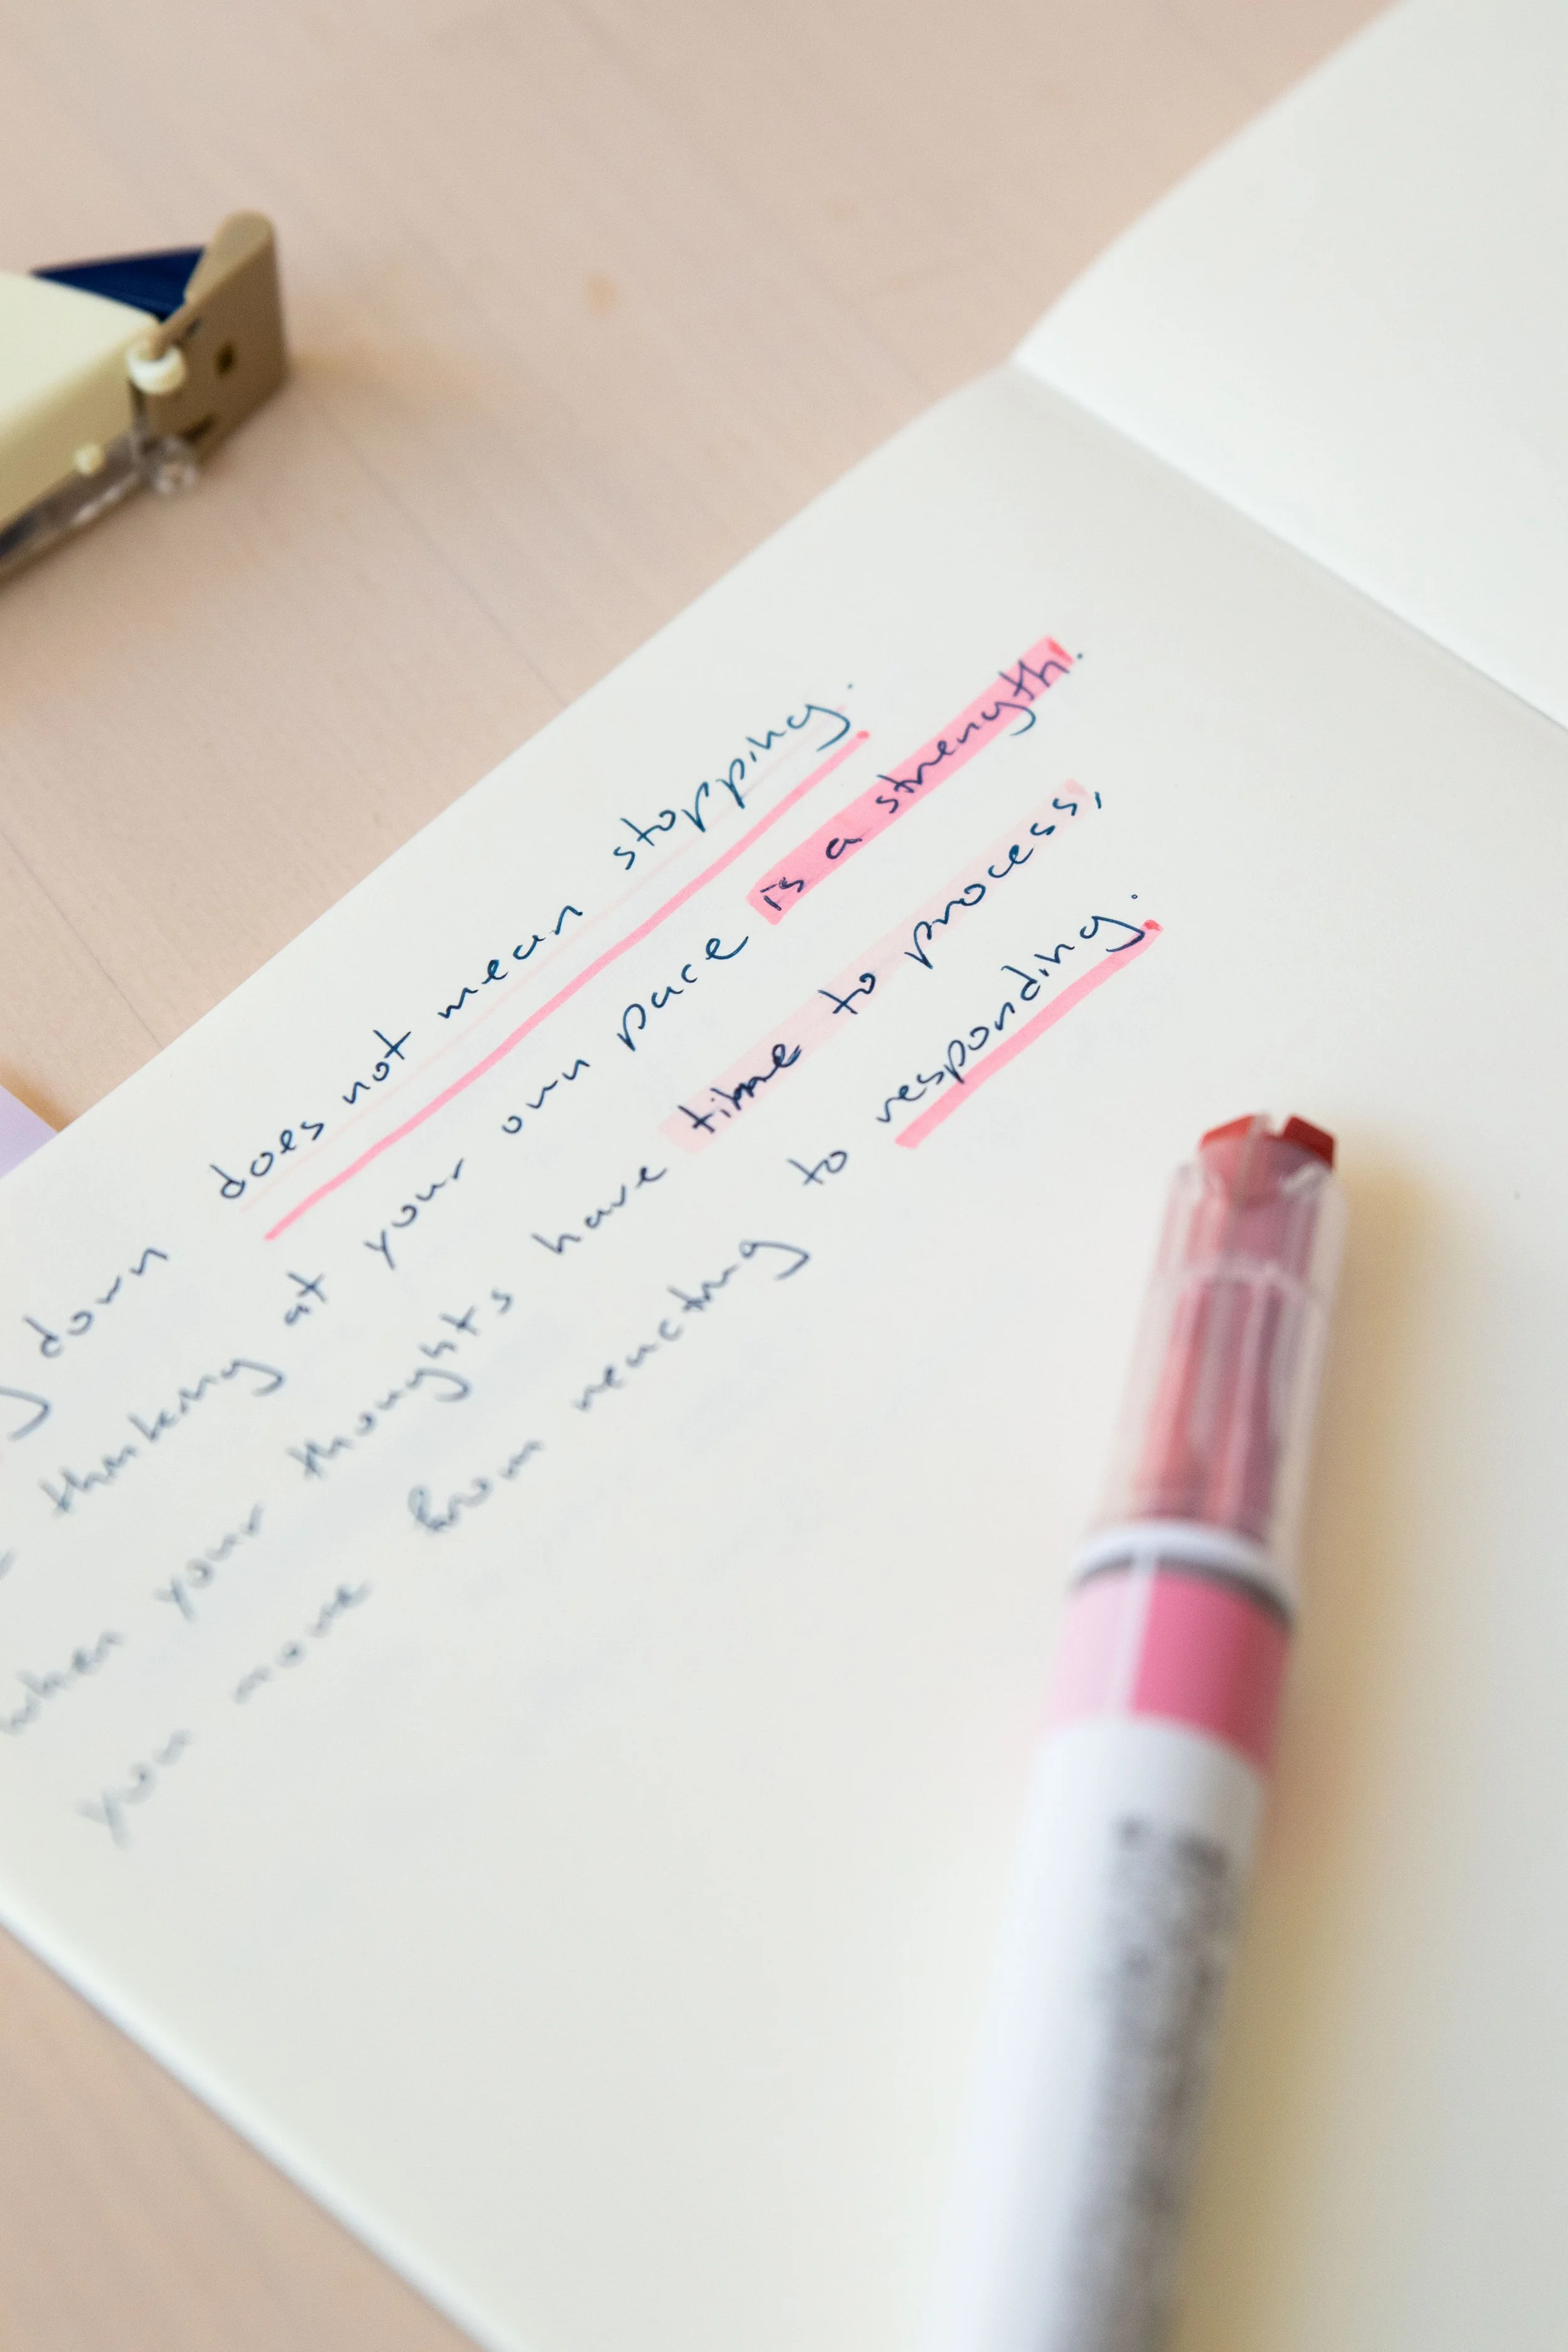 down does not mean stopping.
thinking at your own pace is a strength.
when your thoughts have time to process,
you move from reacting to responding.